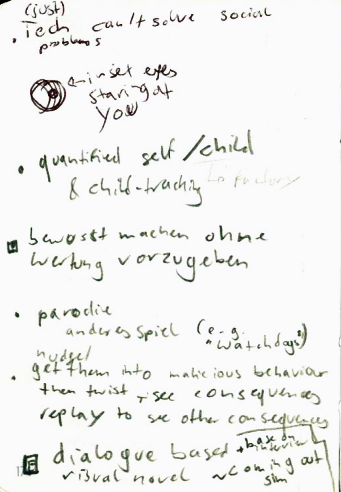 (just)
• Tech can't solve social
problems
← inset eyes
staring at
you
• quantified self/child
& child-tracking
bewusst machen ohne
Wertung vorzugeben
• parodie
anderes Spiel (e.g.
"Watchdogs")
• get them into malicious behaviour
then twist, see consequences
replay to see other consequences
dialogue based
visual novel ~ coming out
sim